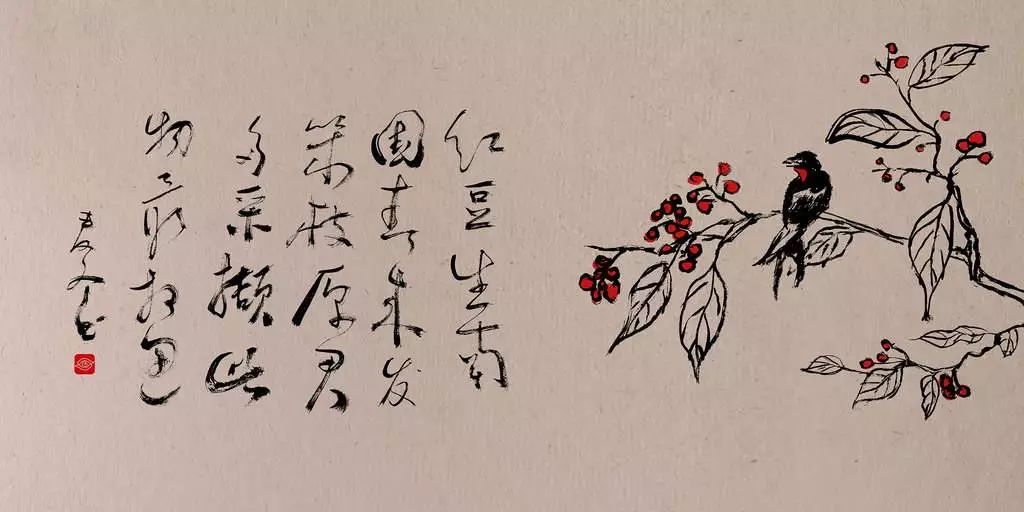 红豆生南
国春来发
几枝愿君
多采撷此
物最相思